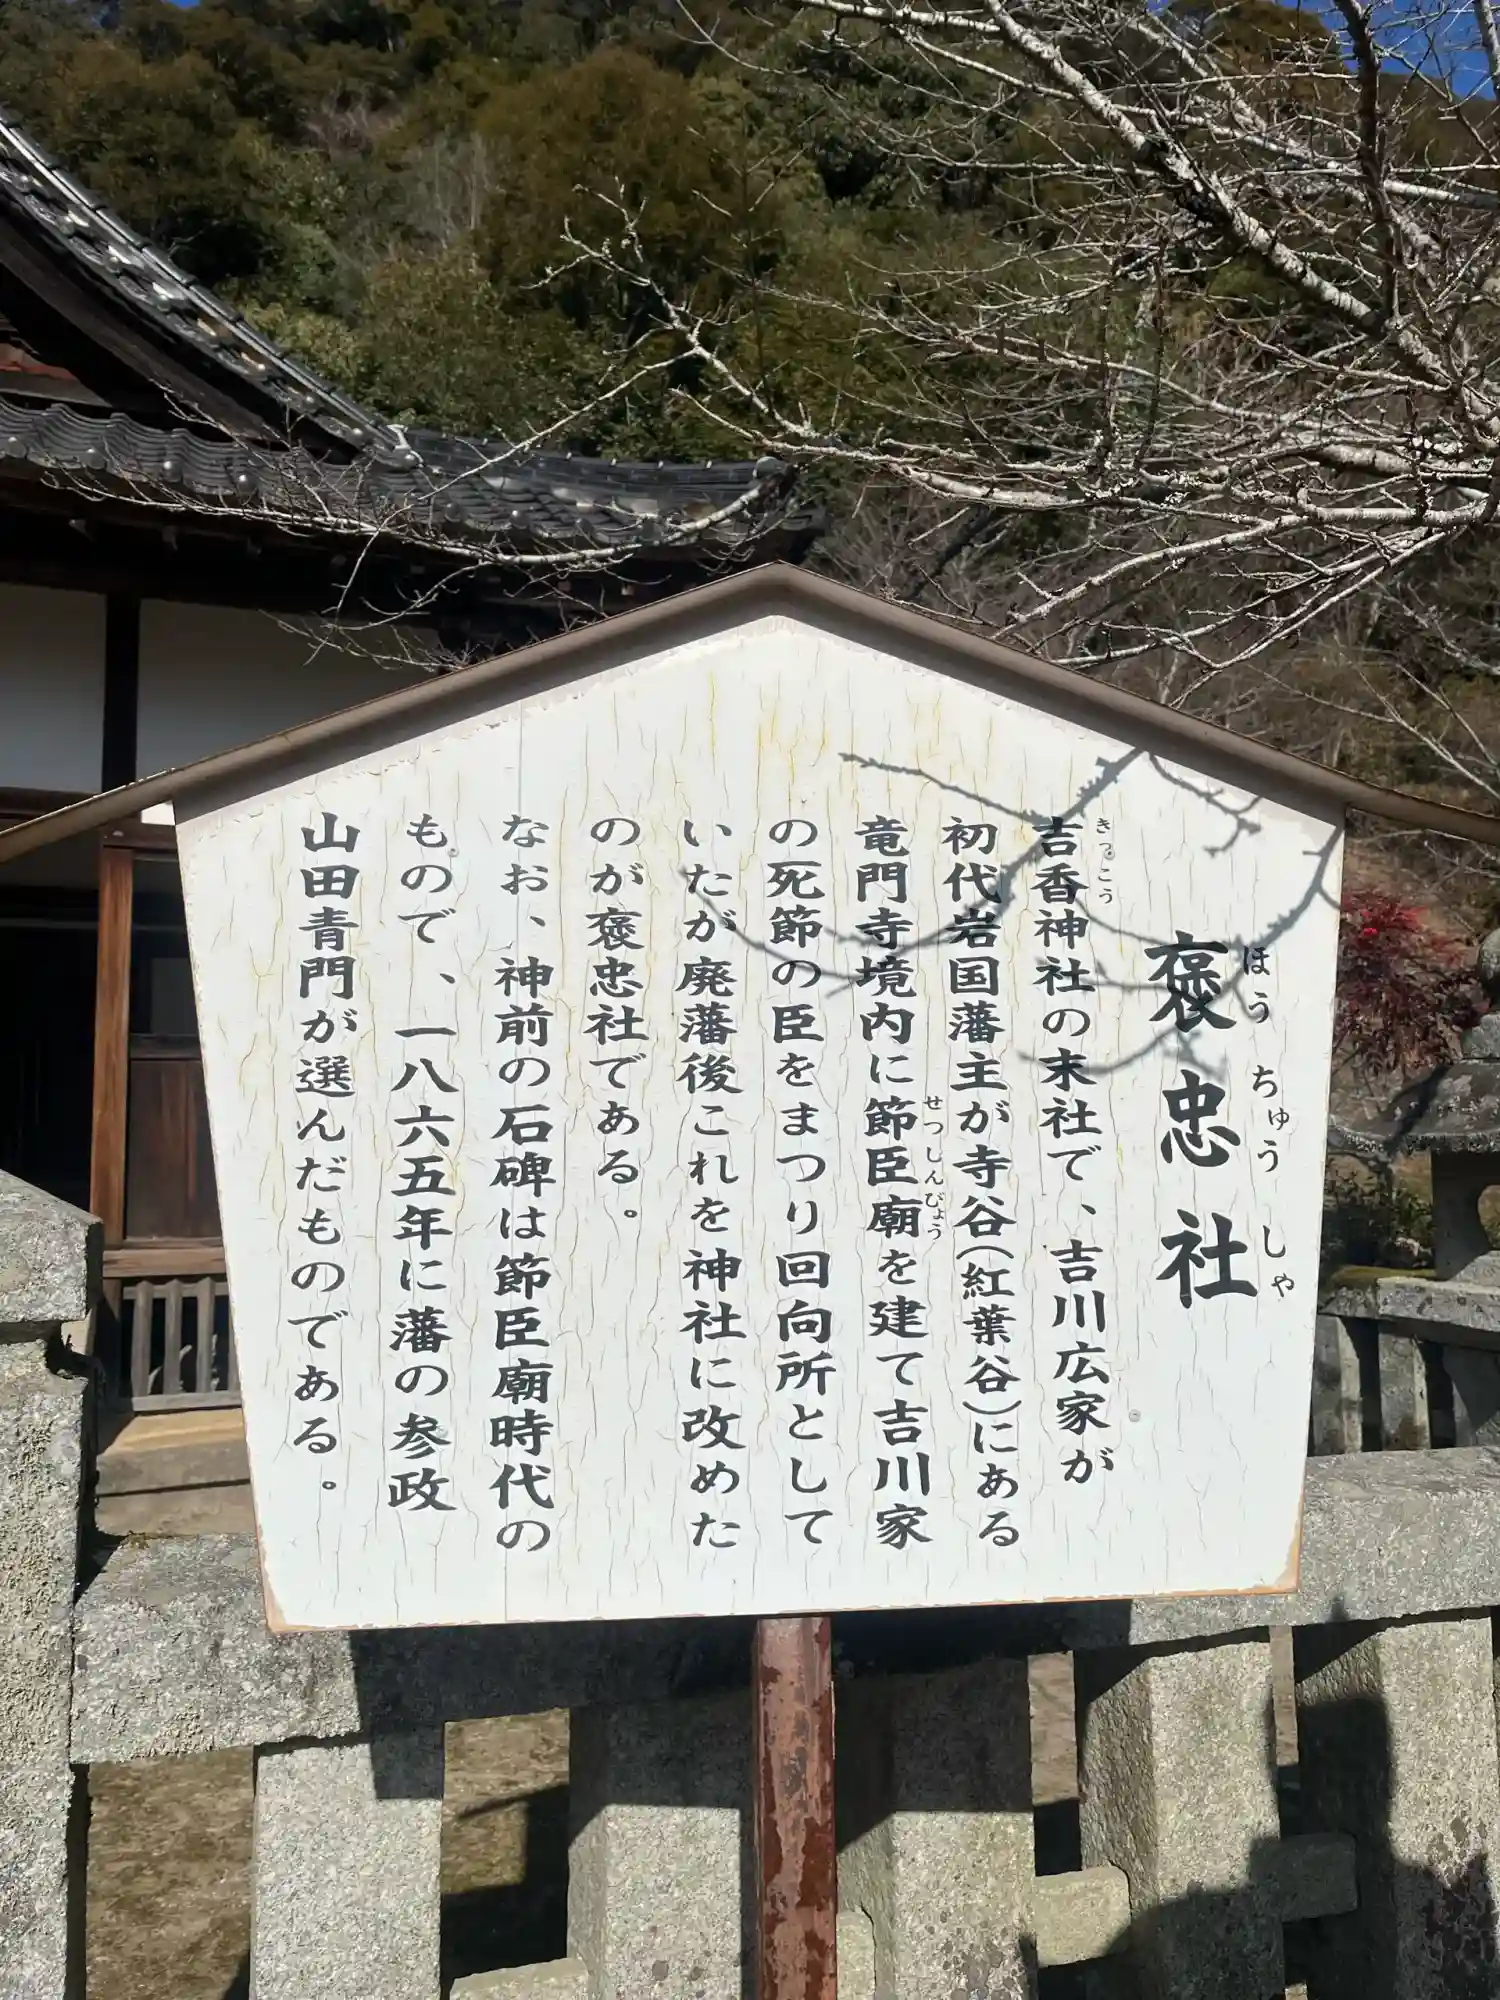 褒忠社
ほうちゅうしゃ
吉香神社の末社で、吉川広家が
きっこう
初代岩国藩主が寺谷(紅葉谷)にある
竜門寺境内に節臣廟を建て吉川家
せつしんびょう
の死節の臣をまつり回向所として
いたが廃藩後これを神社に改めた
のが褒忠社である。
なお、神前の石碑は節臣廟時代の
もので、一八六五年に藩の参政
山田青門が選んだものである。